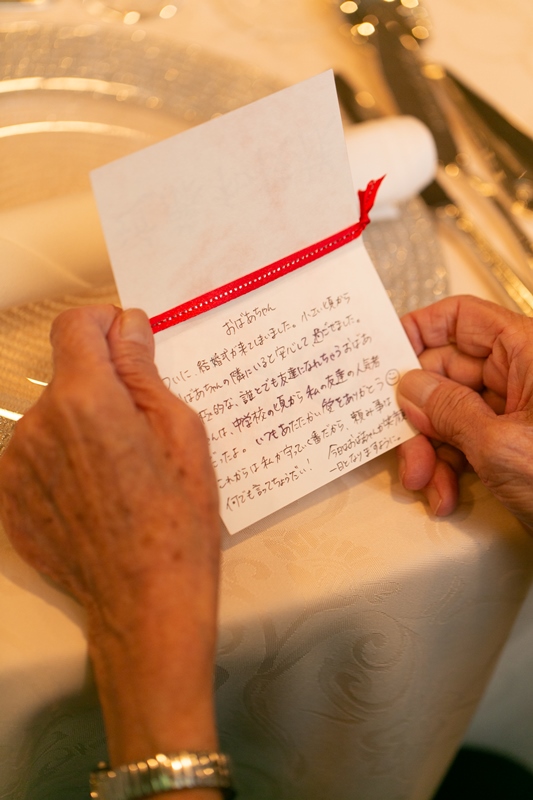 おばあちゃん
ついに 結婚式が来てしまいました。小さい頃から
ばあちゃんの隣にいると安心して 過ごせました。
的な、誰とでも友達になれちゃうおばあ
んは、中学校の頃から 私の友達の人気者
たよ。いつもあたたかい愛をありがとう
これからは私が守っていく番だから、頼み事は
何でも言ってちょうだい！
今日はおばあちゃんが
一日となりますように